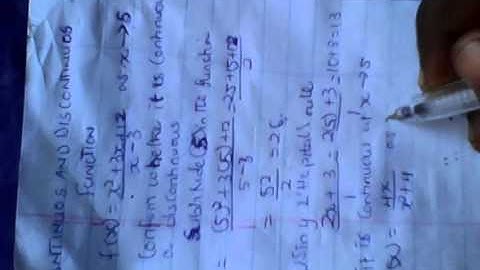 CONTINUOS AND DISCONTINUOS
FUNCTION
f(x) = x²+3x+12 / x-3 as x→5
Confirm whether it is continuous
or discontinuous
Substitute (5) in the function
= (5)²+3(5)+12 / 5-3 = 25+15+12 / 2
= 52 / 2 = 26
using L'Hopital's rule
2x+3 / 1 = 2(5)+3 = 10+3 = 13
it is continuous at x→5
f(x) = 4x / x²+4 as